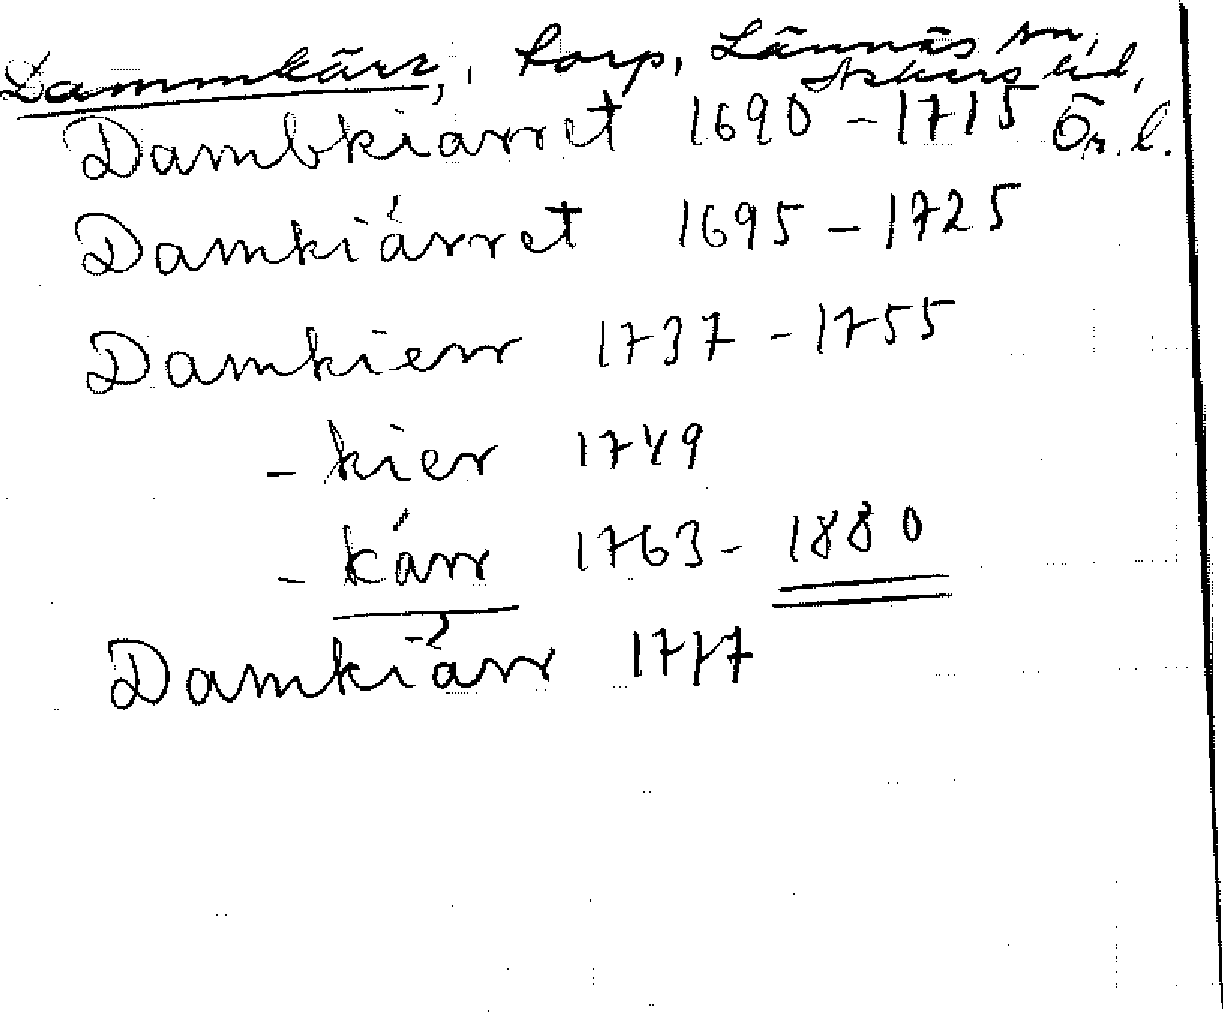 Dammkärr, torp, Lännäs sn,
Askers hd,
Ör. l.
Dambkiarret 1690-1715
Damkiárret 1695-1725
Damkierr 1737-1755
- kier 1749
- kárr 1763- 1880
Damkiärr 1777